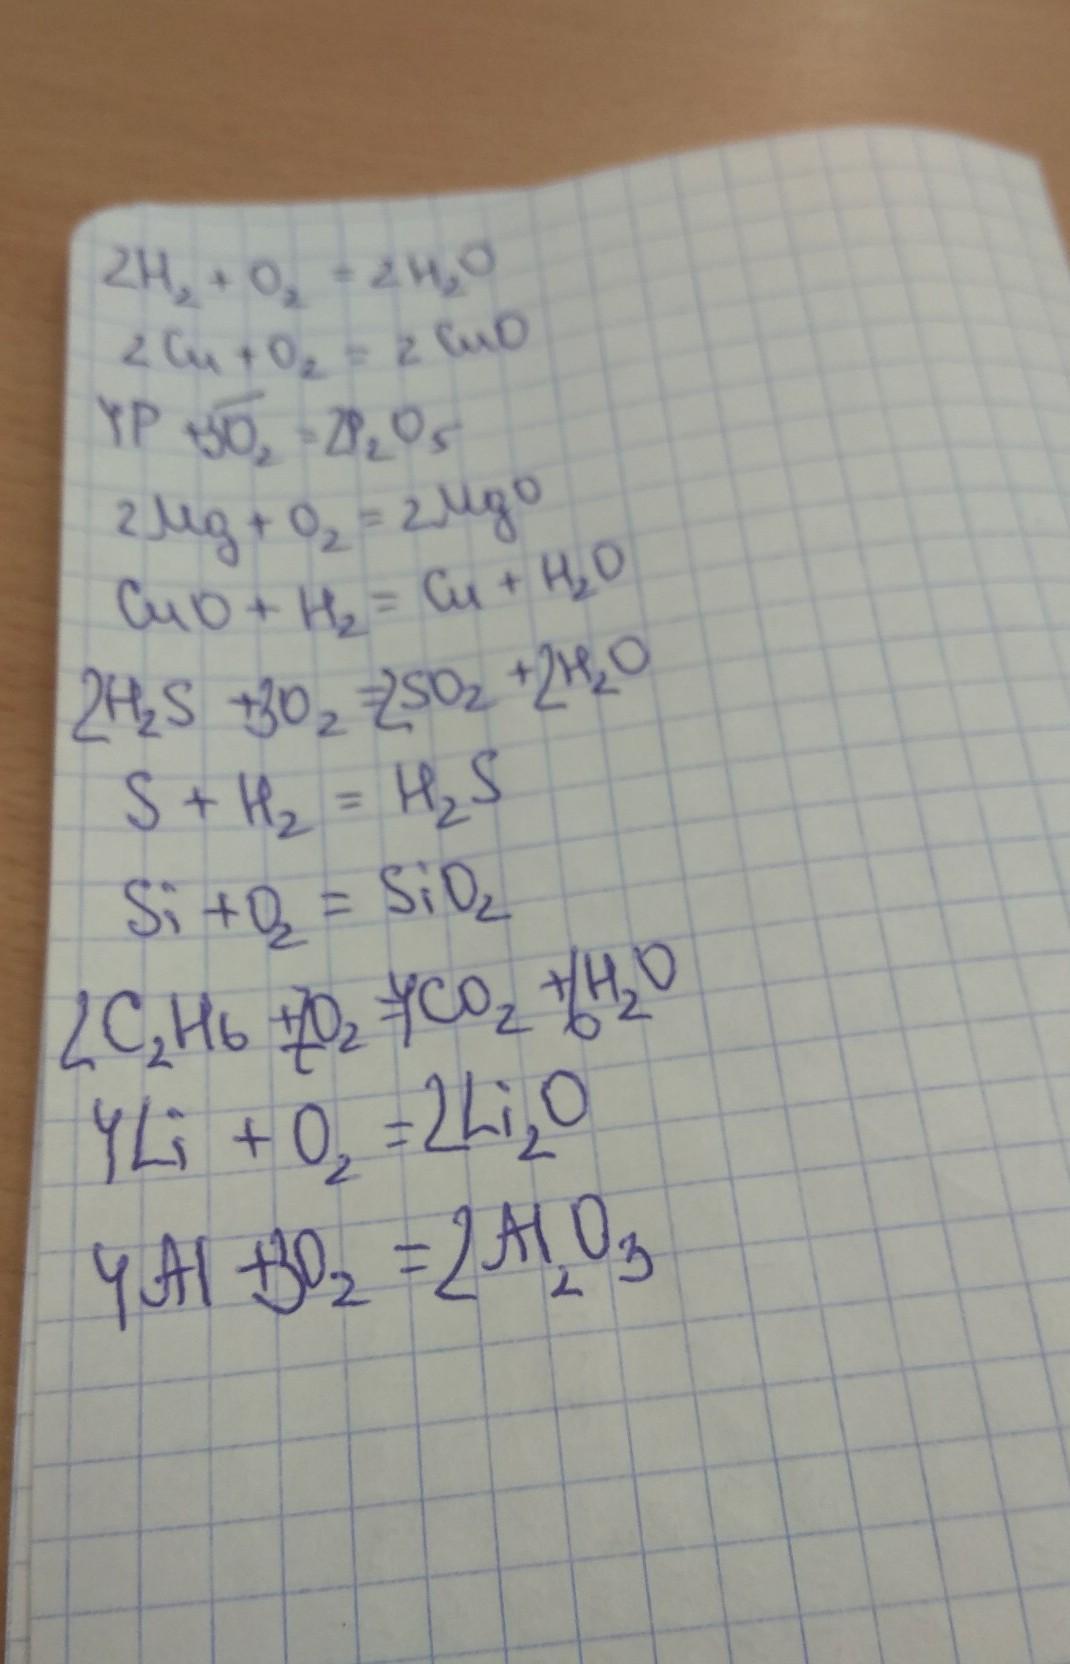 2H₂ + O₂ = 2H₂O
2Cu + O₂ = 2CuO
4P + 5O₂ = 2P₂O₅
2Mg + O₂ = 2MgO
CuO + H₂ = Cu + H₂O
2H₂S + 3O₂ = 2SO₂ + 2H₂O
S + H₂ = H₂S
Si + O₂ = SiO₂
2C₂H₆ + 7O₂ = 4CO₂ + 6H₂O
4Li + O₂ = 2Li₂O
4Al + 3O₂ = 2Al₂O₃